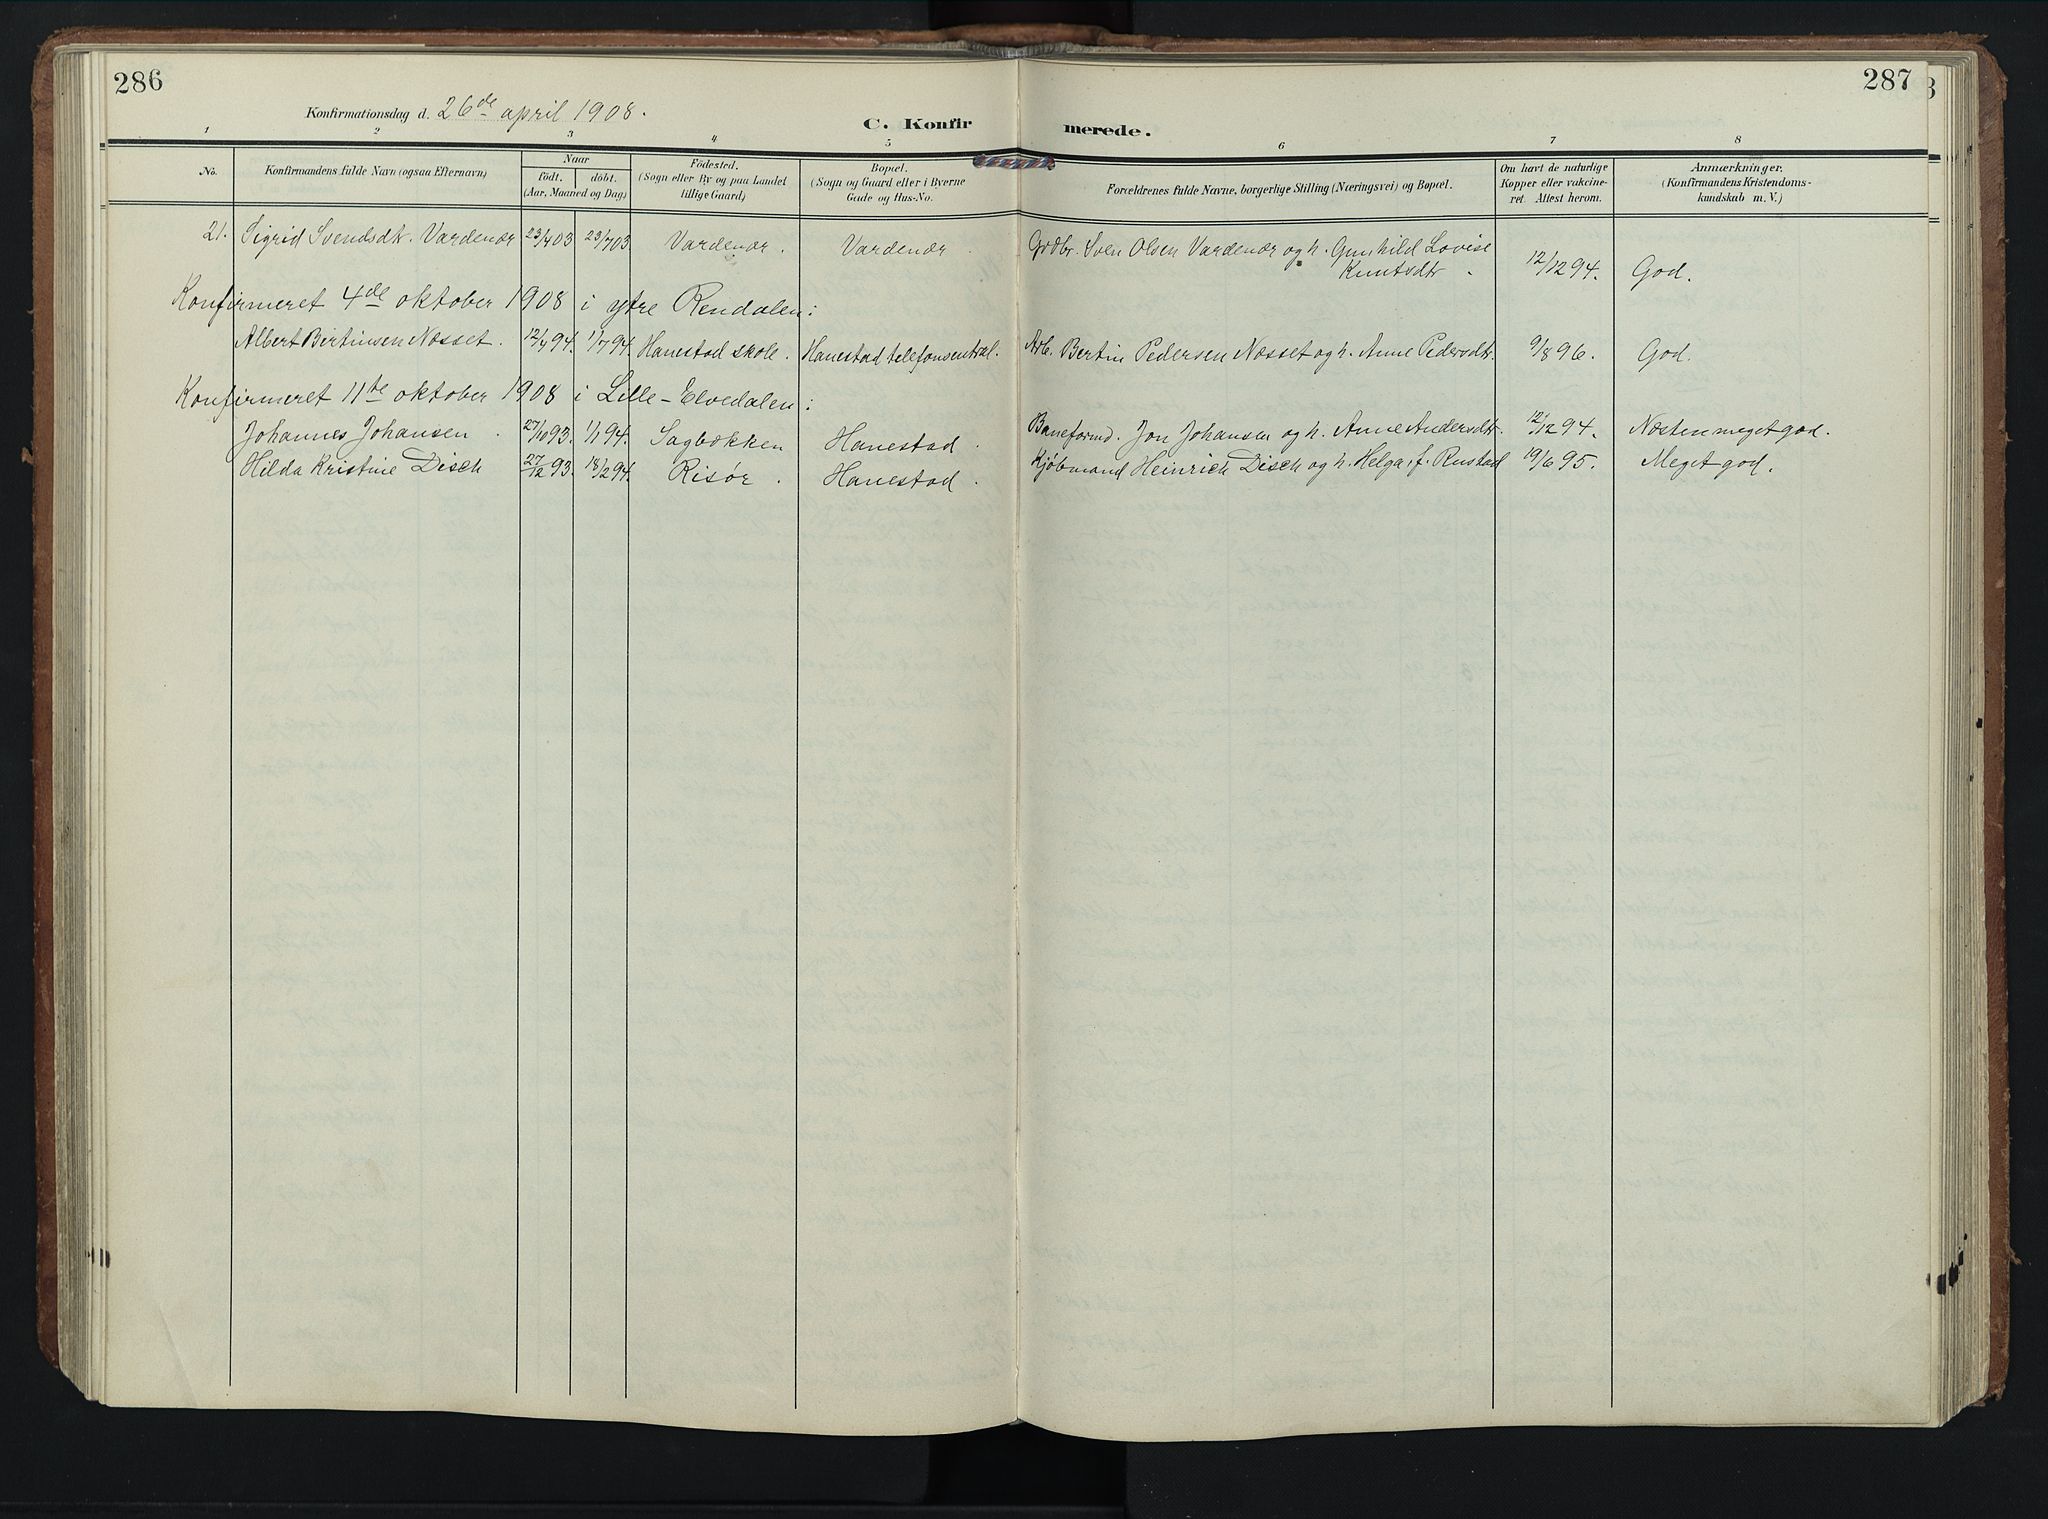 286
Konfirmationsdag d. 26de april 1908.
C. Konfir
merede.
287
1 2 3 4 5 6 7 8
No.
Konfirmandens fulde Navn (ogsaa Efternavn)
Naar
født. døbt.
(Aar, Maaned og Dag)
Födested.
(Sogn eller By og paa Landet
tillige Gaard)
Bopæl.
(Sogn og Gaard eller i Byerne
Gade og Hus-No.
Forældrenes fulde Navne, borgerlige Stilling (Næringsvei) og Bopæl.
Om havt de naturlige
Kopper eller vakcine-
ret. Attest herom.
Anmærkninger.
(Konfirmandens Kristendoms-
kundskab m. V.)
21. Sigrid Svendsdtr. Vardenær 23/4 03 23/7 03 Vardenær. Vardenær. Grdbr. Sven Olsen Vardenær og h. Gunhild Lovise
Knutsdtr. 12/12 94. God.
Konfirmeret 4de oktober 1908 i ytre Rendalen:
Albert Bertinsen Næsset. 12/4 94. 1/7 94. Hanestad skole. Hanestad telefonsentral. Arb. Bertin Pedersen Næsset og h. Anne Pedersdtr. 9/8 96. God.
Konfirmeret 11te oktober 1908 i Lille-Elvedalen:
Johannes Johansen. 27/10 93. 1/1 94. Sagbækken Hanestad Baneformd. Jon Johansen og h. Anne Andersdtr. 12/12 94. Næsten meget god.
Hilda Kristine Disch 27/12 93. 18/2 94. Risør. Hanestad. Kjøbmand Heinrich Disch og h. Helga, f. Rustad 19/6 95. Meget god.